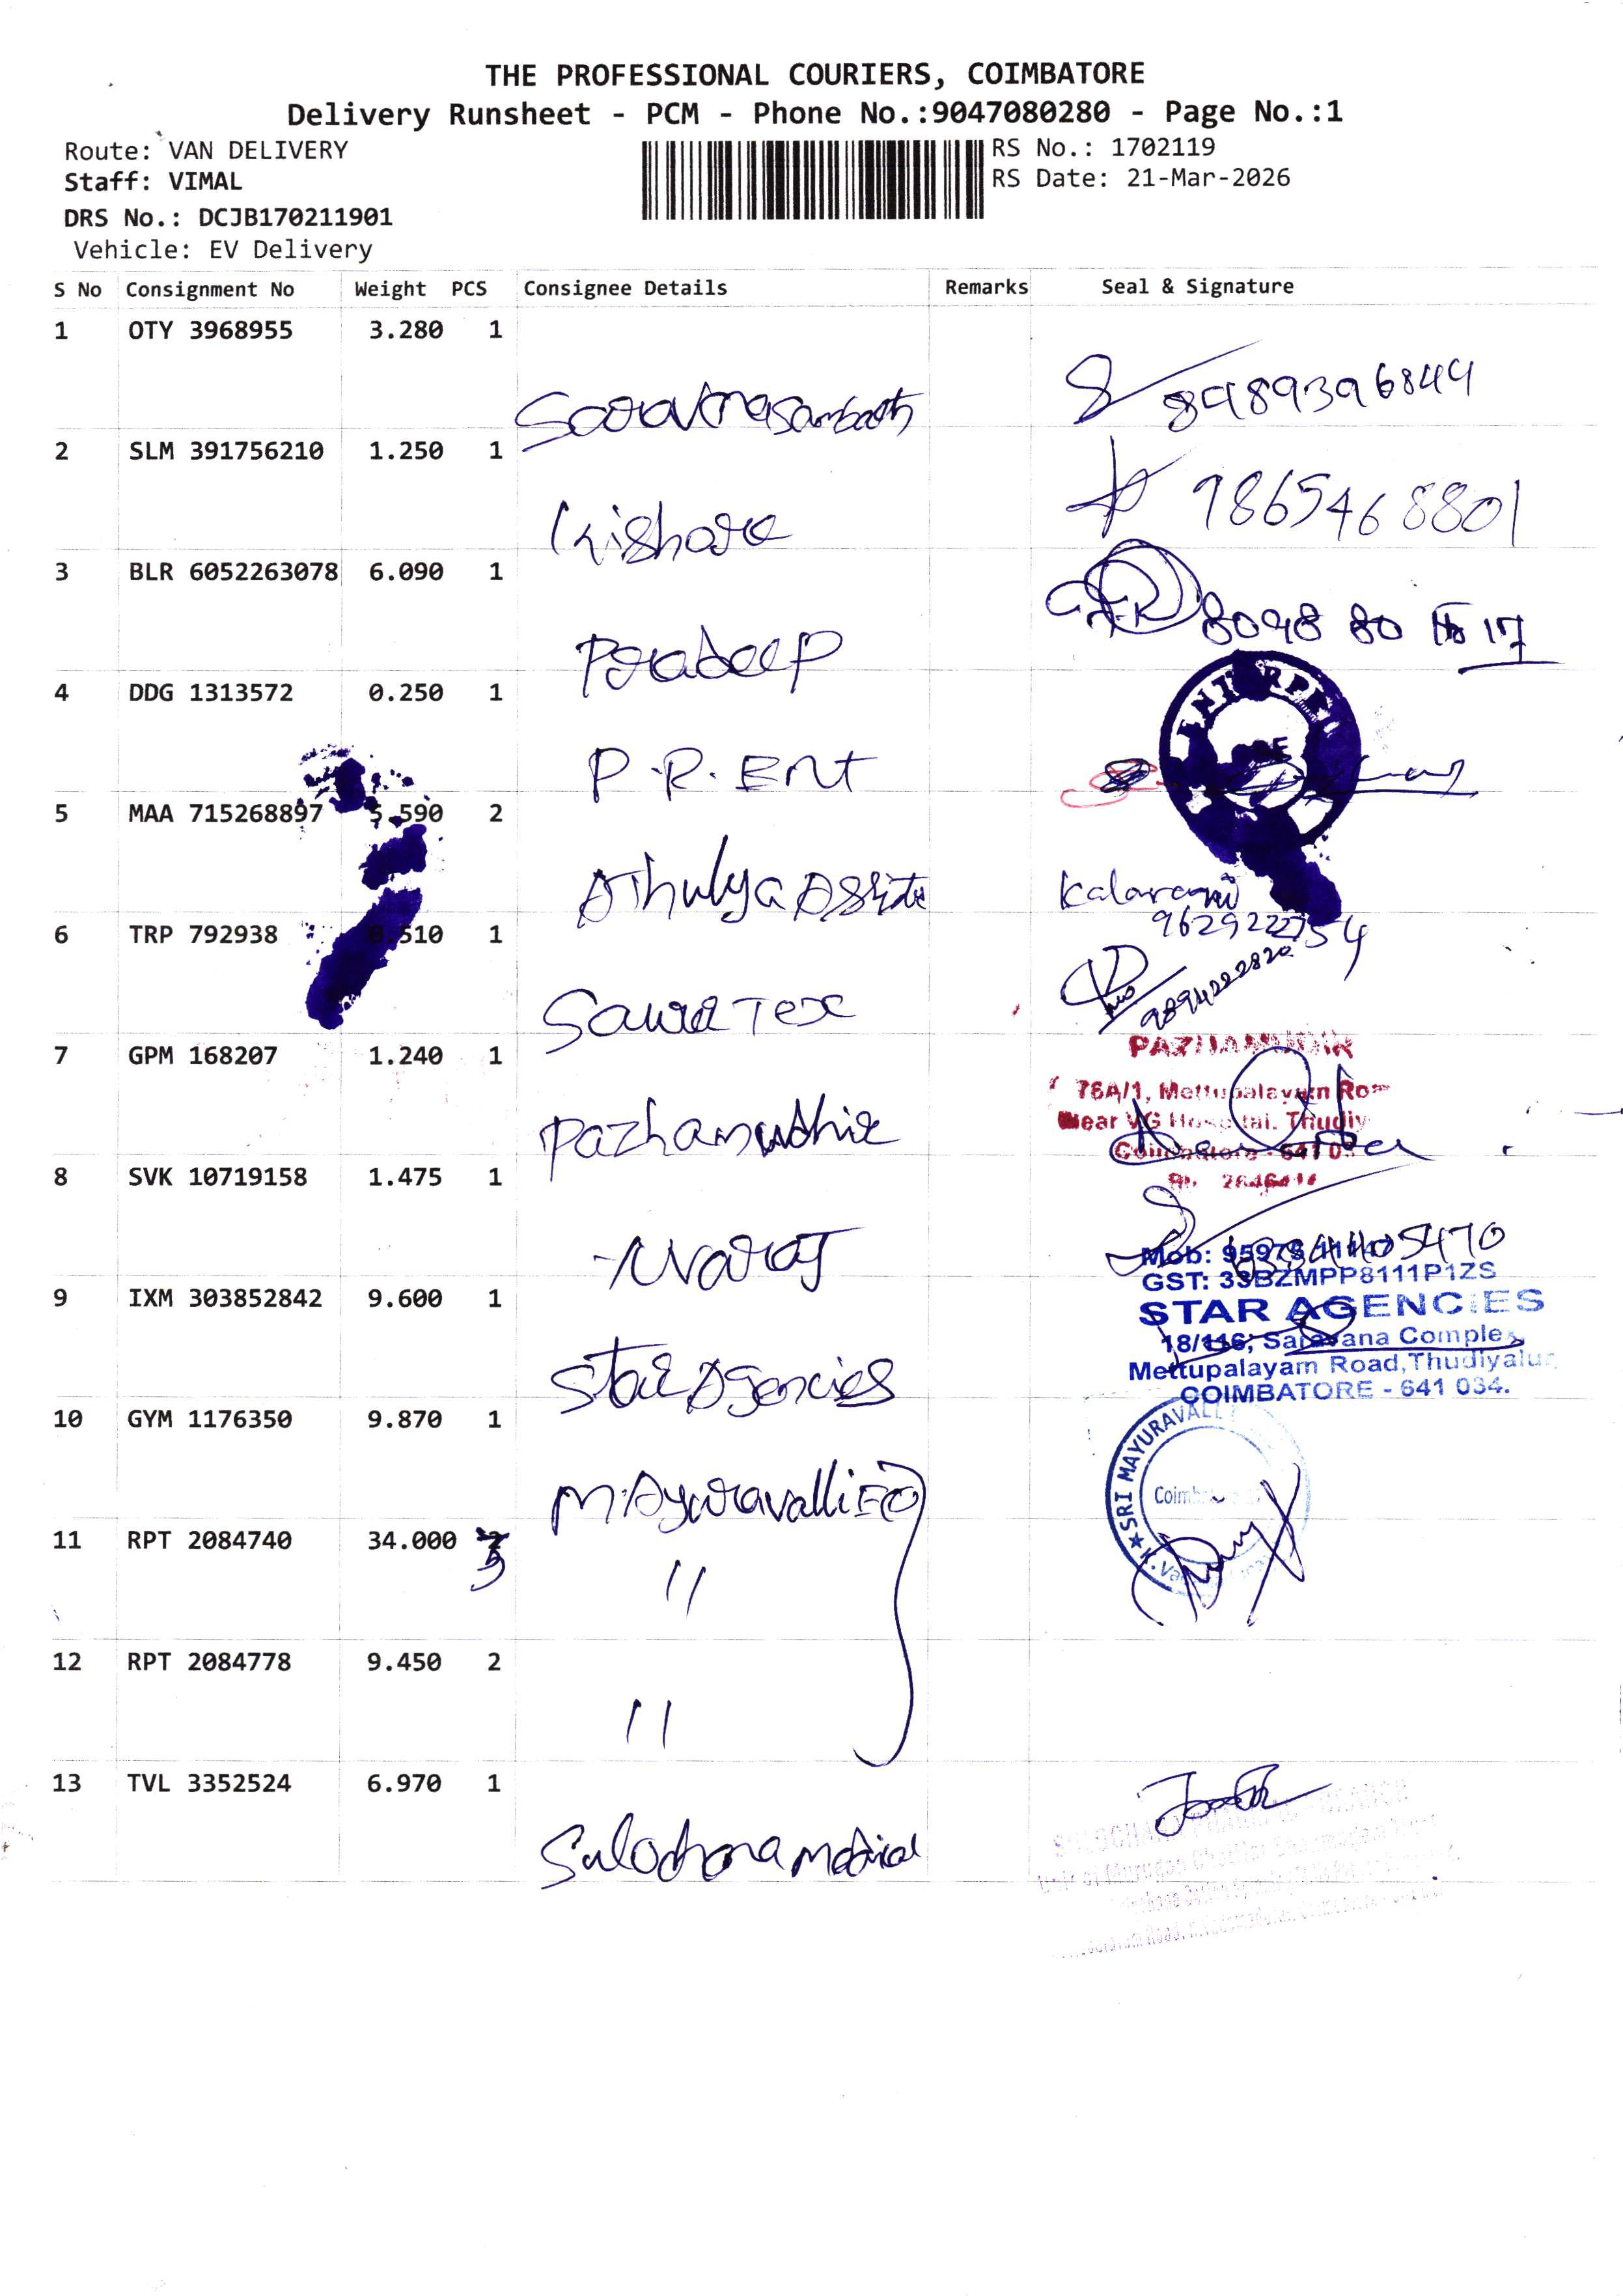 THE PROFESSIONAL COURIERS, COIMBATORE
Delivery Runsheet - PCM - Phone No.:9047080280 - Page No.:1
Route: VAN DELIVERY
RS No.: 1702119
Staff: VIMAL
RS Date: 21-Mar-2026
DRS No.: DCJB170211901
Vehicle: EV Delivery
S No Consignment No Weight PCS Consignee Details Remarks Seal & Signature
1 OTY 3968955 3.280 1
8989396844
2 SLM 391756210 1.250 1
Kishore 9865468801
3 BLR 6052263078 6.090 1
Pradeep 8098 80 17
4 DDG 1313572 0.250 1
P.R. Ent
5 MAA 715268897 5.590 2
Athulya Kalarani
9629222754
6 TRP 792938 .510 1
Tex 9894222820
7 GPM 168207 1.240 1
PAZHAMUDIR
76A/1, Mettupalayam
Near VG Hospital, Thudiy
Pazhamudhir
Coimbatore - 641 03
8 SVK 10719158 1.475 1
Mob: 95975
GST: 33BZMPP8111P1ZS
9 IXM 303852842 9.600 1
STAR AGENCIES
18/116, Saravana Complex
Mettupalayam Road, Thudiyalur
COIMBATORE - 641 034.
Star Agencies
10 GYM 1176350 9.870 1
SRI MAYURAVALLI
Mayuravalli
11 RPT 2084740 34.000 3
"
12 RPT 2084778 9.450 2
"
13 TVL 3352524 6.970 1
Sulochana Medical